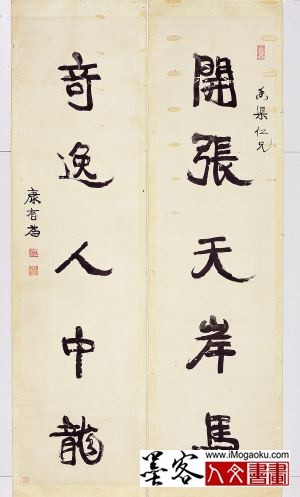 禹渠仁兄
開張天岸馬
奇逸人中龍
康有為
www.iMogaoku.com
墨客
人文書畫